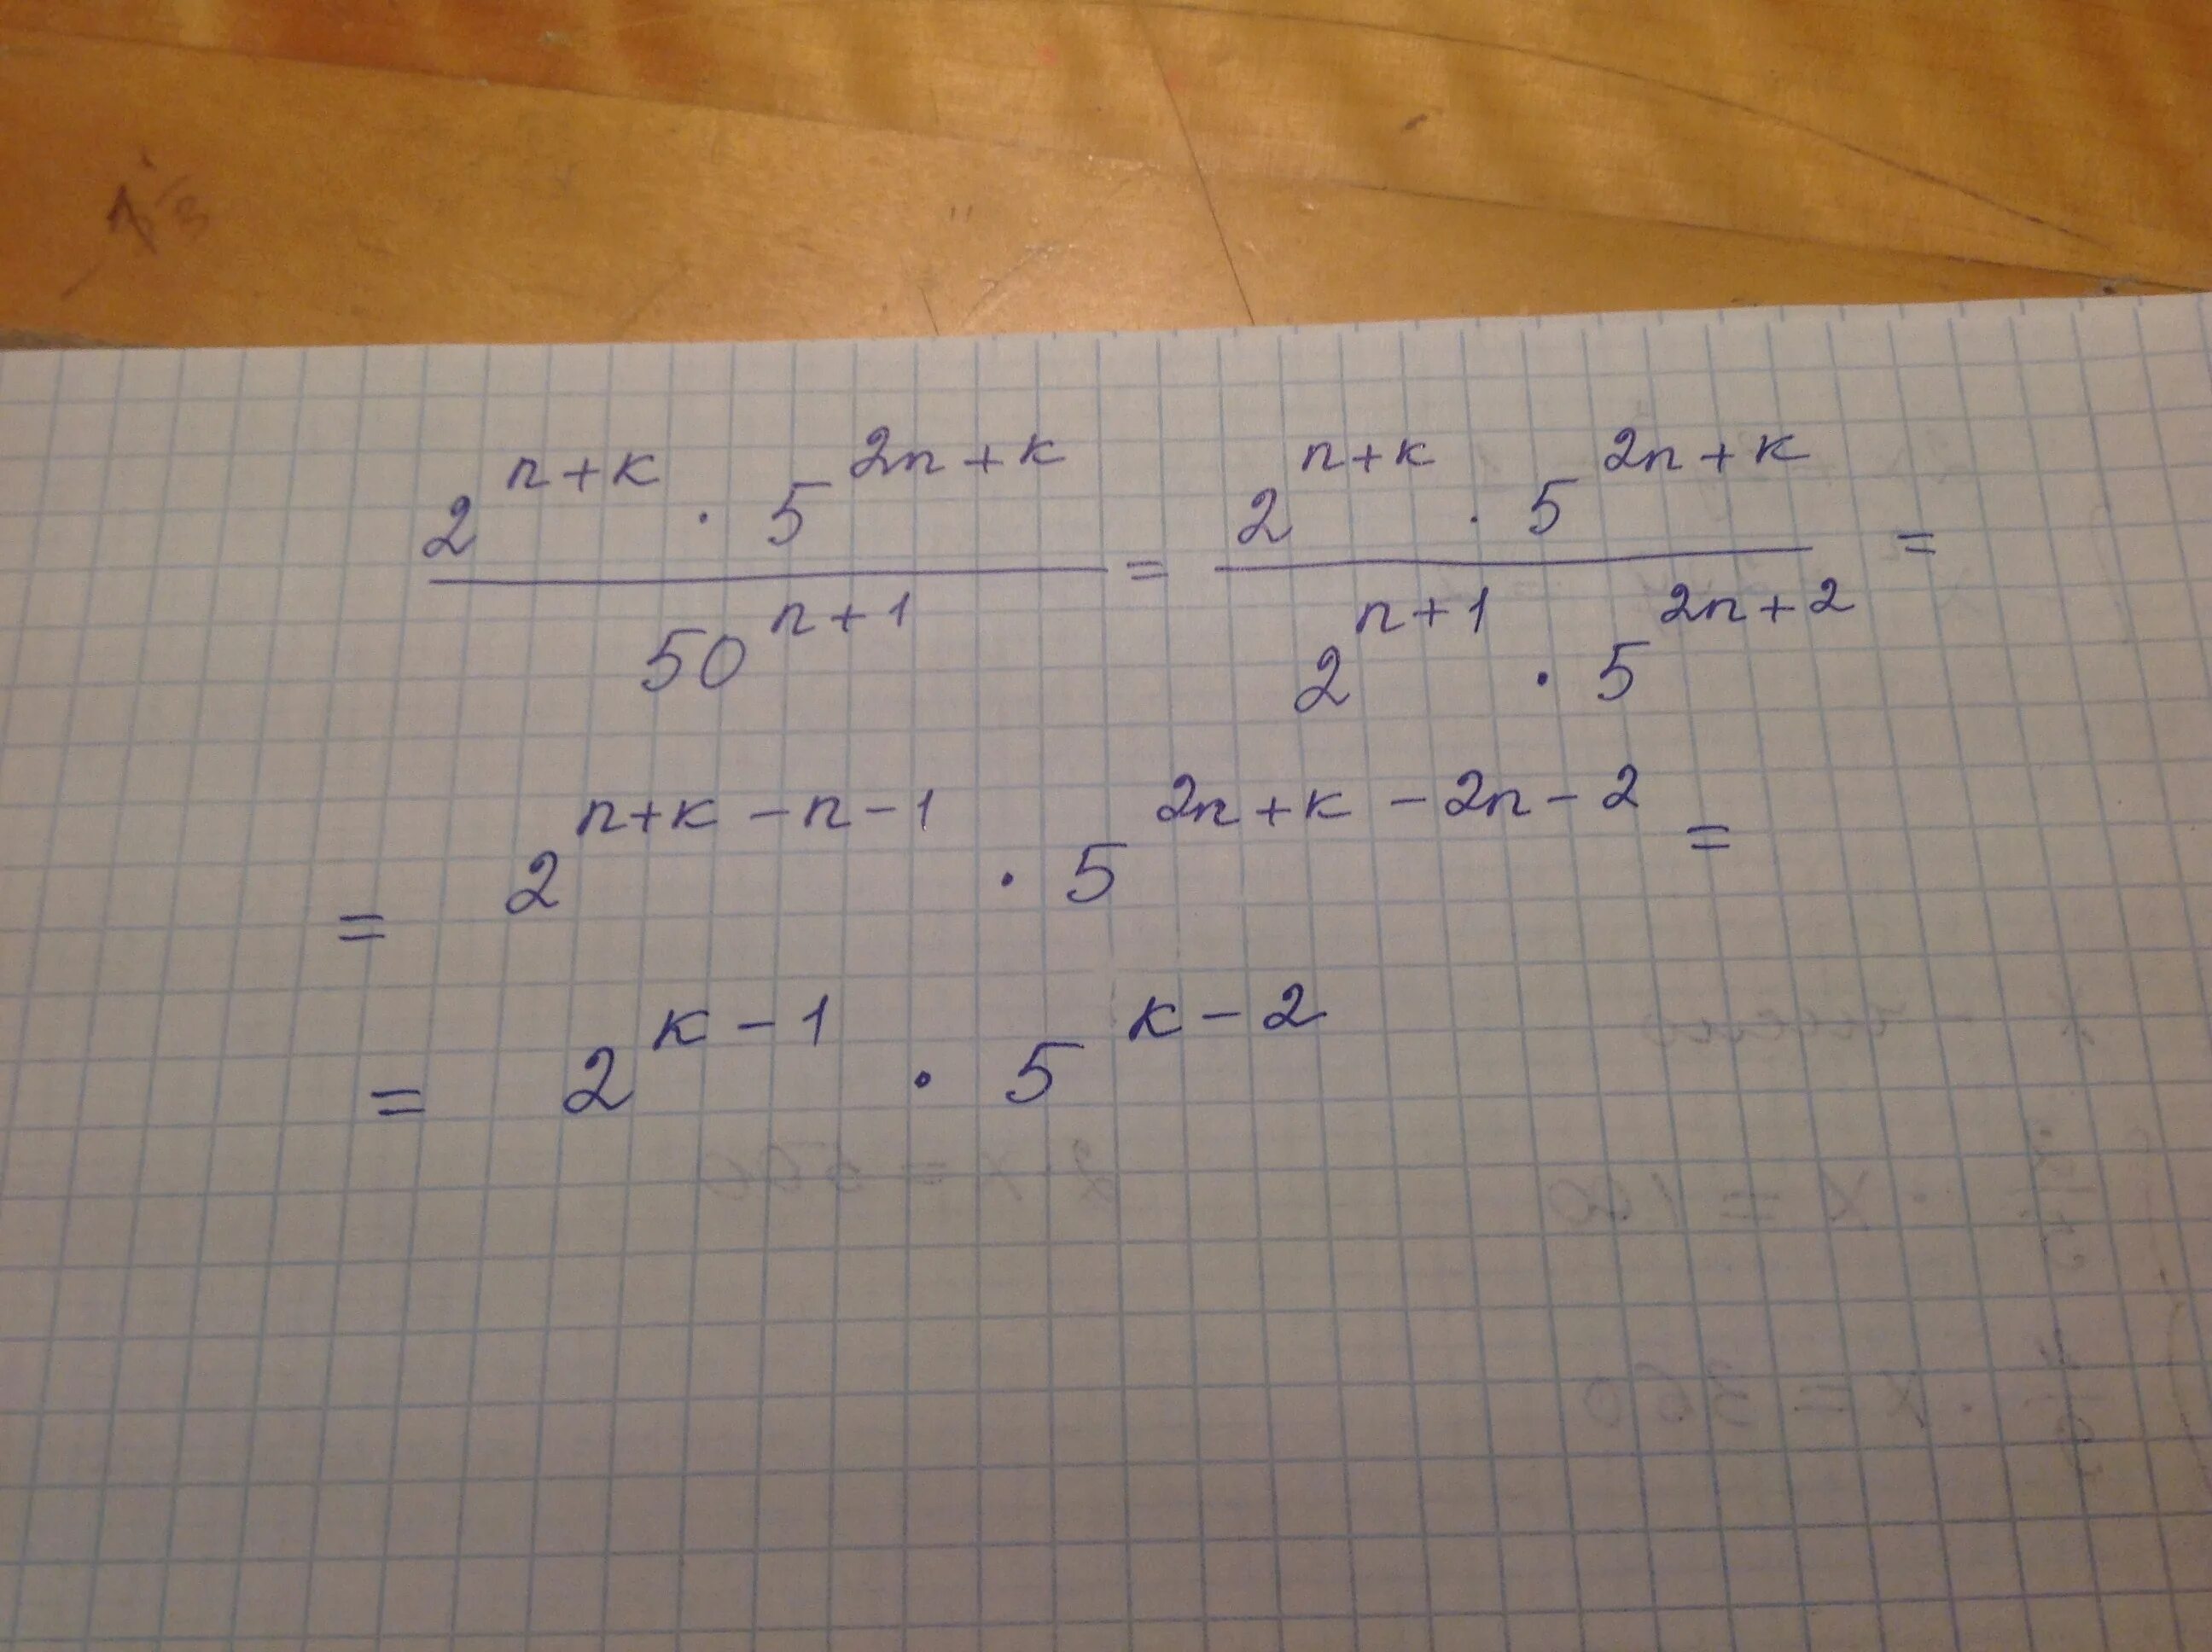 2^{n+k} · 5^{2n+k} / 50^{n+1} = 2^{n+k} · 5^{2n+k} / 2^{n+1} · 5^{2n+2} =
= 2^{n+k-n-1} · 5^{2n+k-2n-2} =
= 2^{k-1} · 5^{k-2}